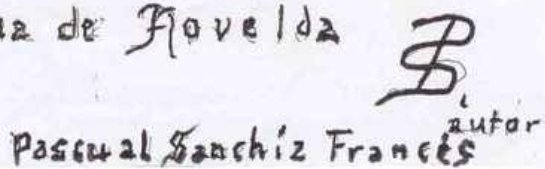 de Novelda
autor
Pascual Sanchiz Francés